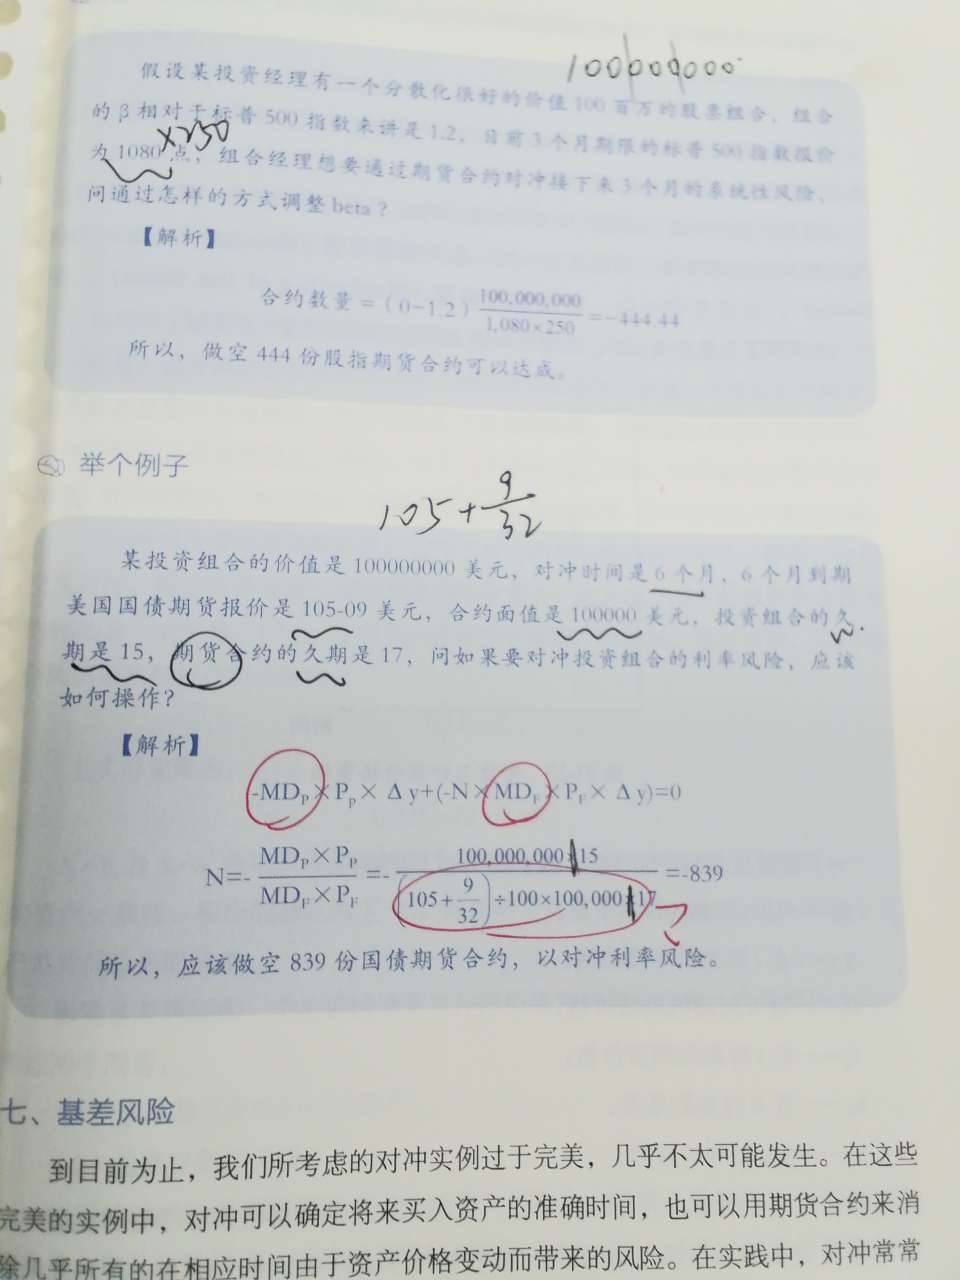 100000000
假设某投资经理有一个分散化很好的价值 100 百万的股票组合，组合
的 β 相对于标普 500 指数来讲是 1.2，目前 3 个月期限的标普 500 指数报价
×250
为 1080 点，组合经理想要通过期货合约对冲接下来 3 个月的系统性风险，
问通过怎样的方式调整 beta？
【解析】
合约数量 =（0-1.2）100,000,000/1,080×250 =-444.44
所以，做空 444 份股指期货合约可以达成。
举个例子
105+9/32
某投资组合的价值是 100000000 美元，对冲时间是 6 个月，6 个月到期
美国国债期货报价是 105-09 美元，合约面值是 100000 美元，投资组合的久
期是 15，期货合约的久期是 17，问如果要对冲投资组合的利率风险，应该
如何操作？
【解析】
-MD_P×P_P×Δy+(-N×MD_F×P_F×Δy)=0
N=-MD_P×P_P/MD_F×P_F=-100,000,000×15/(105+9/32)÷100×100,000×17=-839
所以，应该做空 839 份国债期货合约，以对冲利率风险。
七、基差风险
到目前为止，我们所考虑的对冲实例过于完美，几乎不太可能发生。在这些
完美的实例中，对冲可以确定将来买入资产的准确时间，也可以用期货合约来消
除几乎所有的在相应时间由于资产价格变动而带来的风险。在实践中，对冲常常